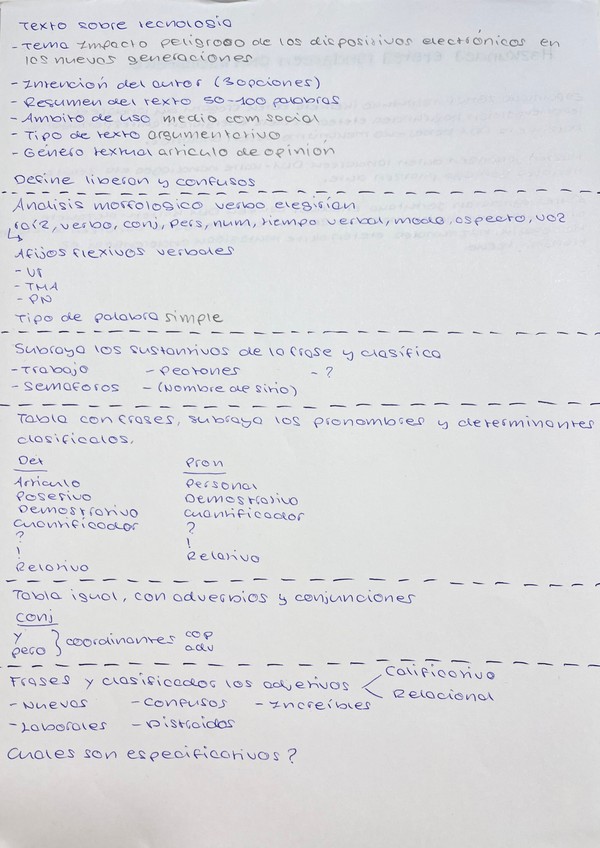 Texto sobre tecnología
- Tema Impacto peligroso de los dispositivos electrónicos en
los nuevos generaciones
- Intención del autor (3 opciones)
- Resumen del texto 50-100 palabras
- Ambito de uso medio com social
- Tipo de texto argumentativo
- Género textual articulo de opinión
Define liberan y confusos
Analisis morfologico verbo elegirían
raíz, verbo, conj, pers, num, tiempo verbal, modo, aspecto, voz
Afijos flexivos verbales
- VT
- TMA
- PN
Tipo de palabra simple
Subraya los sustantivos de la frase y clasifica
- Trabajo - Peatones - ?
- Semaforos - (Nombre de sitio)
Tabla con frases, subraya los pronombres y determinantes
clasificalos.
Det Pron
Artículo Personal
Posesivo Demostrativo
Demostrativo Cuantificador
Cuantificador ?
? !
! Relativo
Relativo
Tabla igual, con adverbios y conjunciones
Conj
y
pero } coordinantes cop
adv
Frases y clasificador los adjetivos < Calificativo
Relacional
- Nuevas - Confusos - Increíbles
- Laborales - Distraidos
Cuales son especificativos?